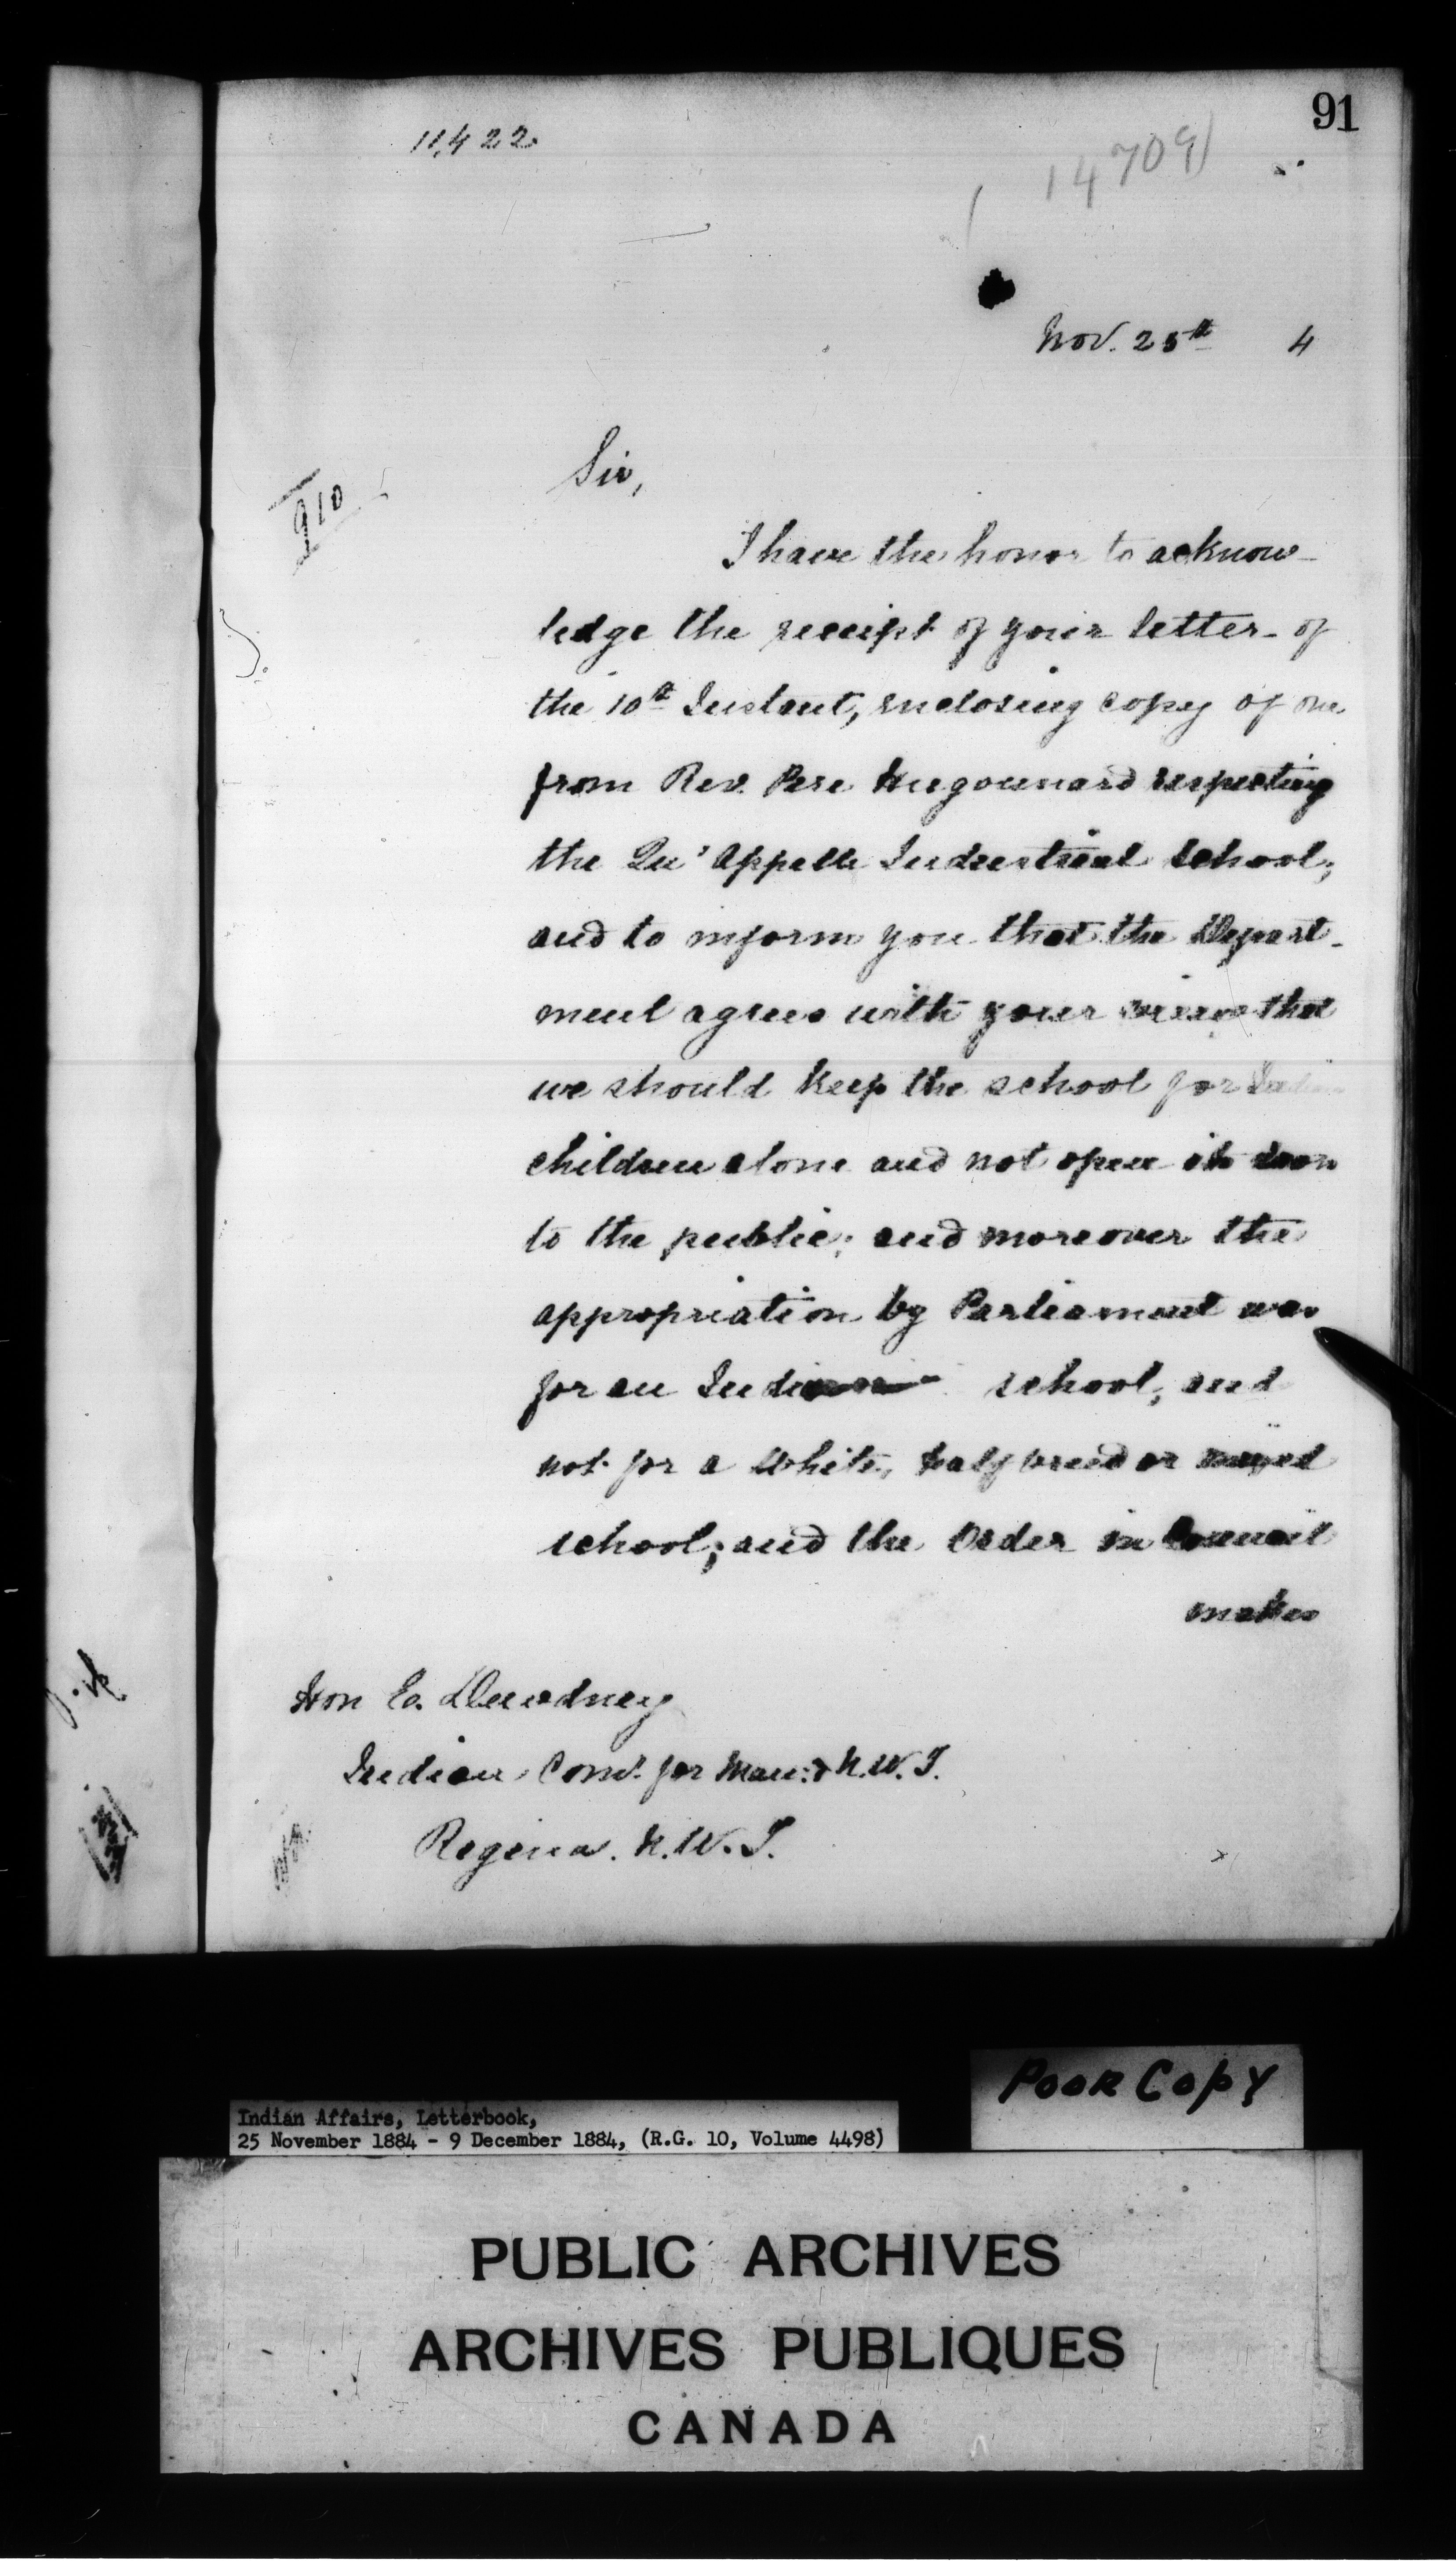 91
11,422
14709
Nov. 25th 4
910
Sir,
I have the honor to acknow-
ledge the receipt of your letter of
the 10th Instant, enclosing copy of one
from Rev. Pere Hugounard respecting
the Qu'Appelle Industrial School,
and to inform you that the Depart-
ment agrees with your views that
we should keep the school for Indian
children alone and not open its doors
to the public; and moreover the
appropriation by Parliament was
for an Indian school, and
not for a White, halfbreed or mixed
school; and the Order in Council
makes
Hon E. Dewdney
Indian Comr. for Man: & N.W.T.
Regina. N.W.T.
Poor Copy
Indian Affairs, Letterbook,
25 November 1884 - 9 December 1884, (R.G. 10, Volume 4498)
PUBLIC ARCHIVES
ARCHIVES PUBLIQUES
CANADA